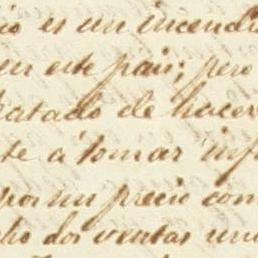 es un incendi
en este pais; pero
tratado de hacer
te a tomar inf
por un precio con
ho dos ventas un